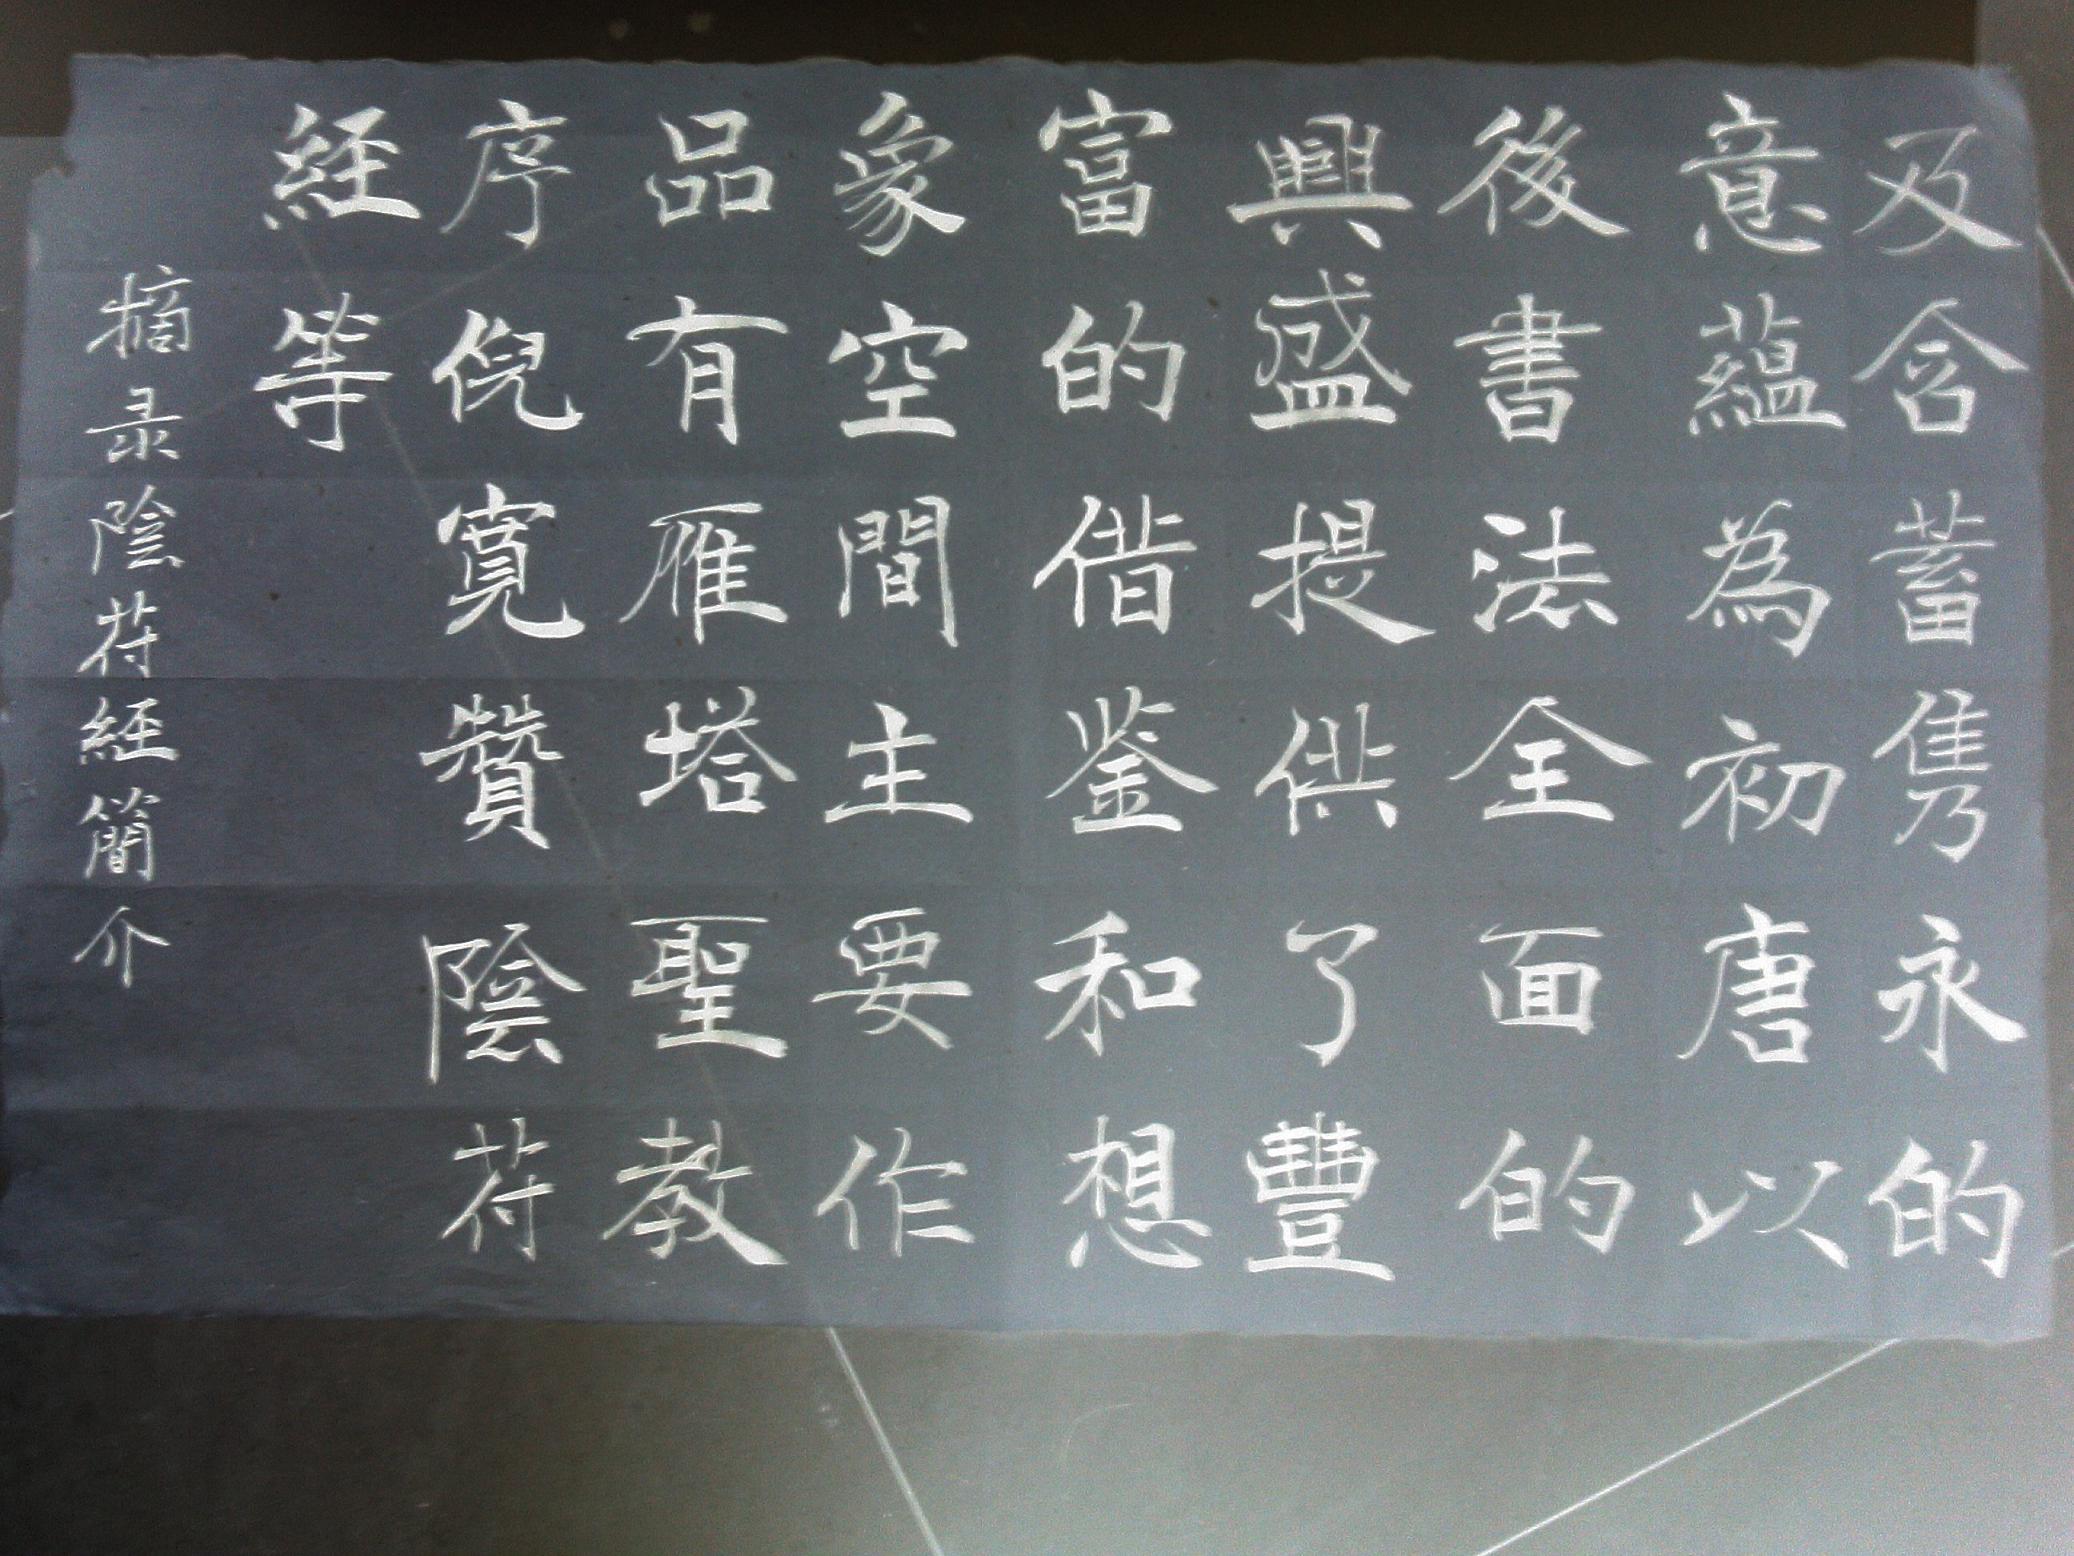 及含蓄隽永的
意蘊為初唐以
後書法全面的
興盛提供了豐
富的借鉴和想
象空間主要作
品有雁塔聖教
序倪寬贊陰符
経等
摘录陰符経簡介